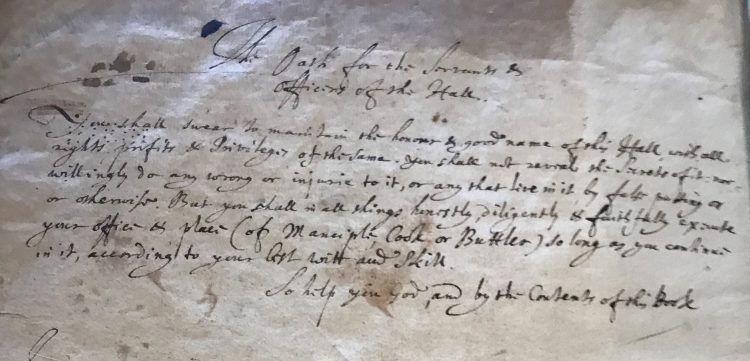 The Oath for the Servants &
Officers of the Hall.
You shall swear to maintain the honour & good name of this Hall, with all
rights profits & Priviledges of the same. you shall not reveal the secrets of it nor
willingly do any wrong or injurie to it, or any that live in it by false
or otherwise. But you shall in all things honestly, diligently & faithfully execute
your office & place (of Manciple, Cook or Buttler) so long as you continue
in it, according to your best witt and Skill.
So help you God, and by the Contents of this Book